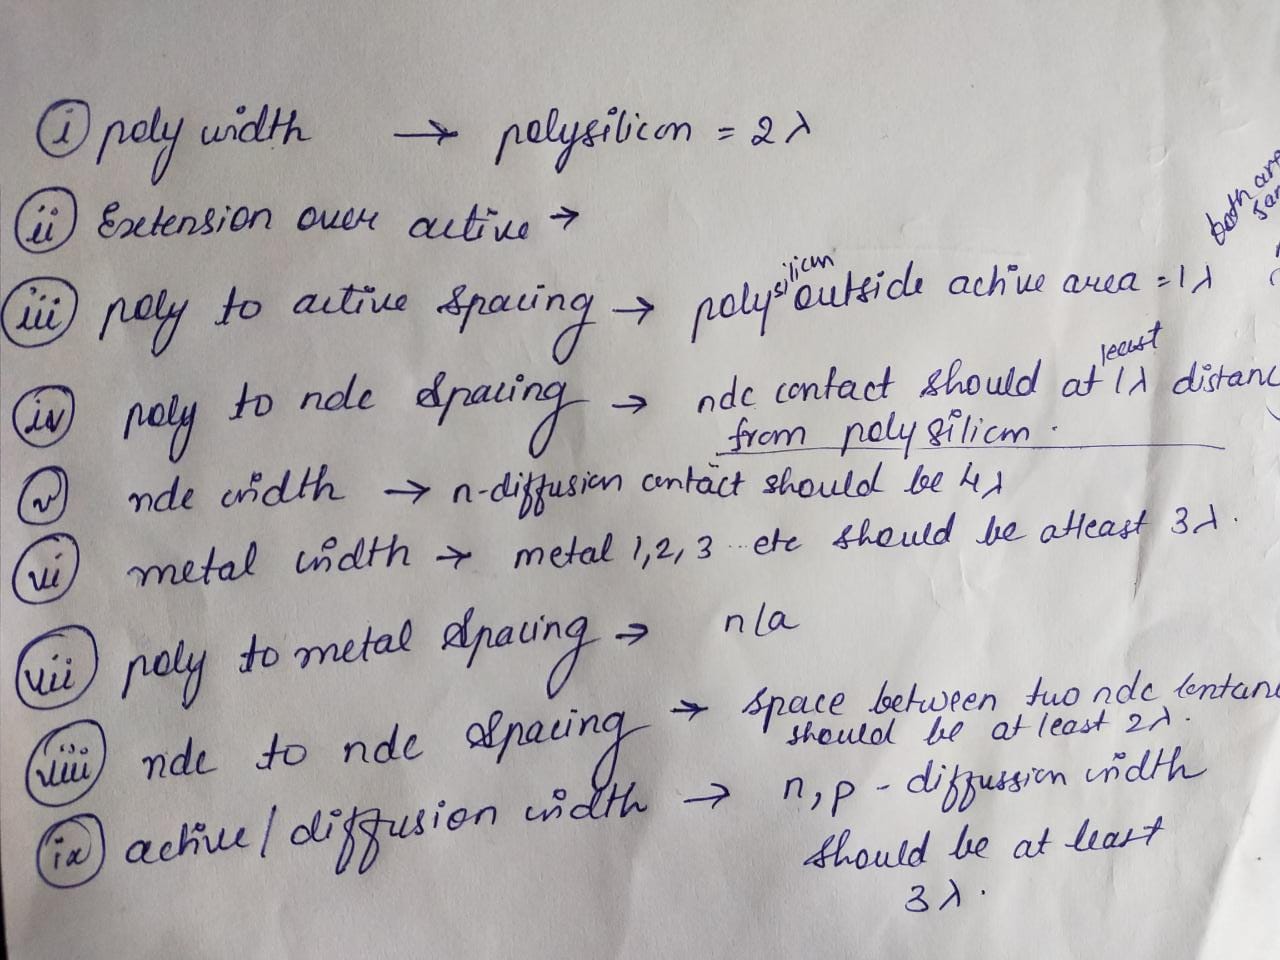 i poly width → polysilicon = 2λ
ii Extension over active →
both are
iii poly to active spacing → polysilicon outside active area = 1λ
iv poly to ndc spacing → ndc contact should at least 1λ distanc
from polysilicon.
v ndc width → n-diffusion contact should be 4λ
vi metal width → metal 1,2,3 ..etc should be atleast 3λ.
vii poly to metal spacing → n/a
viii ndc to ndc spacing → space between two ndc
should be at least 2λ.
ix active/diffusion width → n,p - diffussion width
should be at least
3λ.